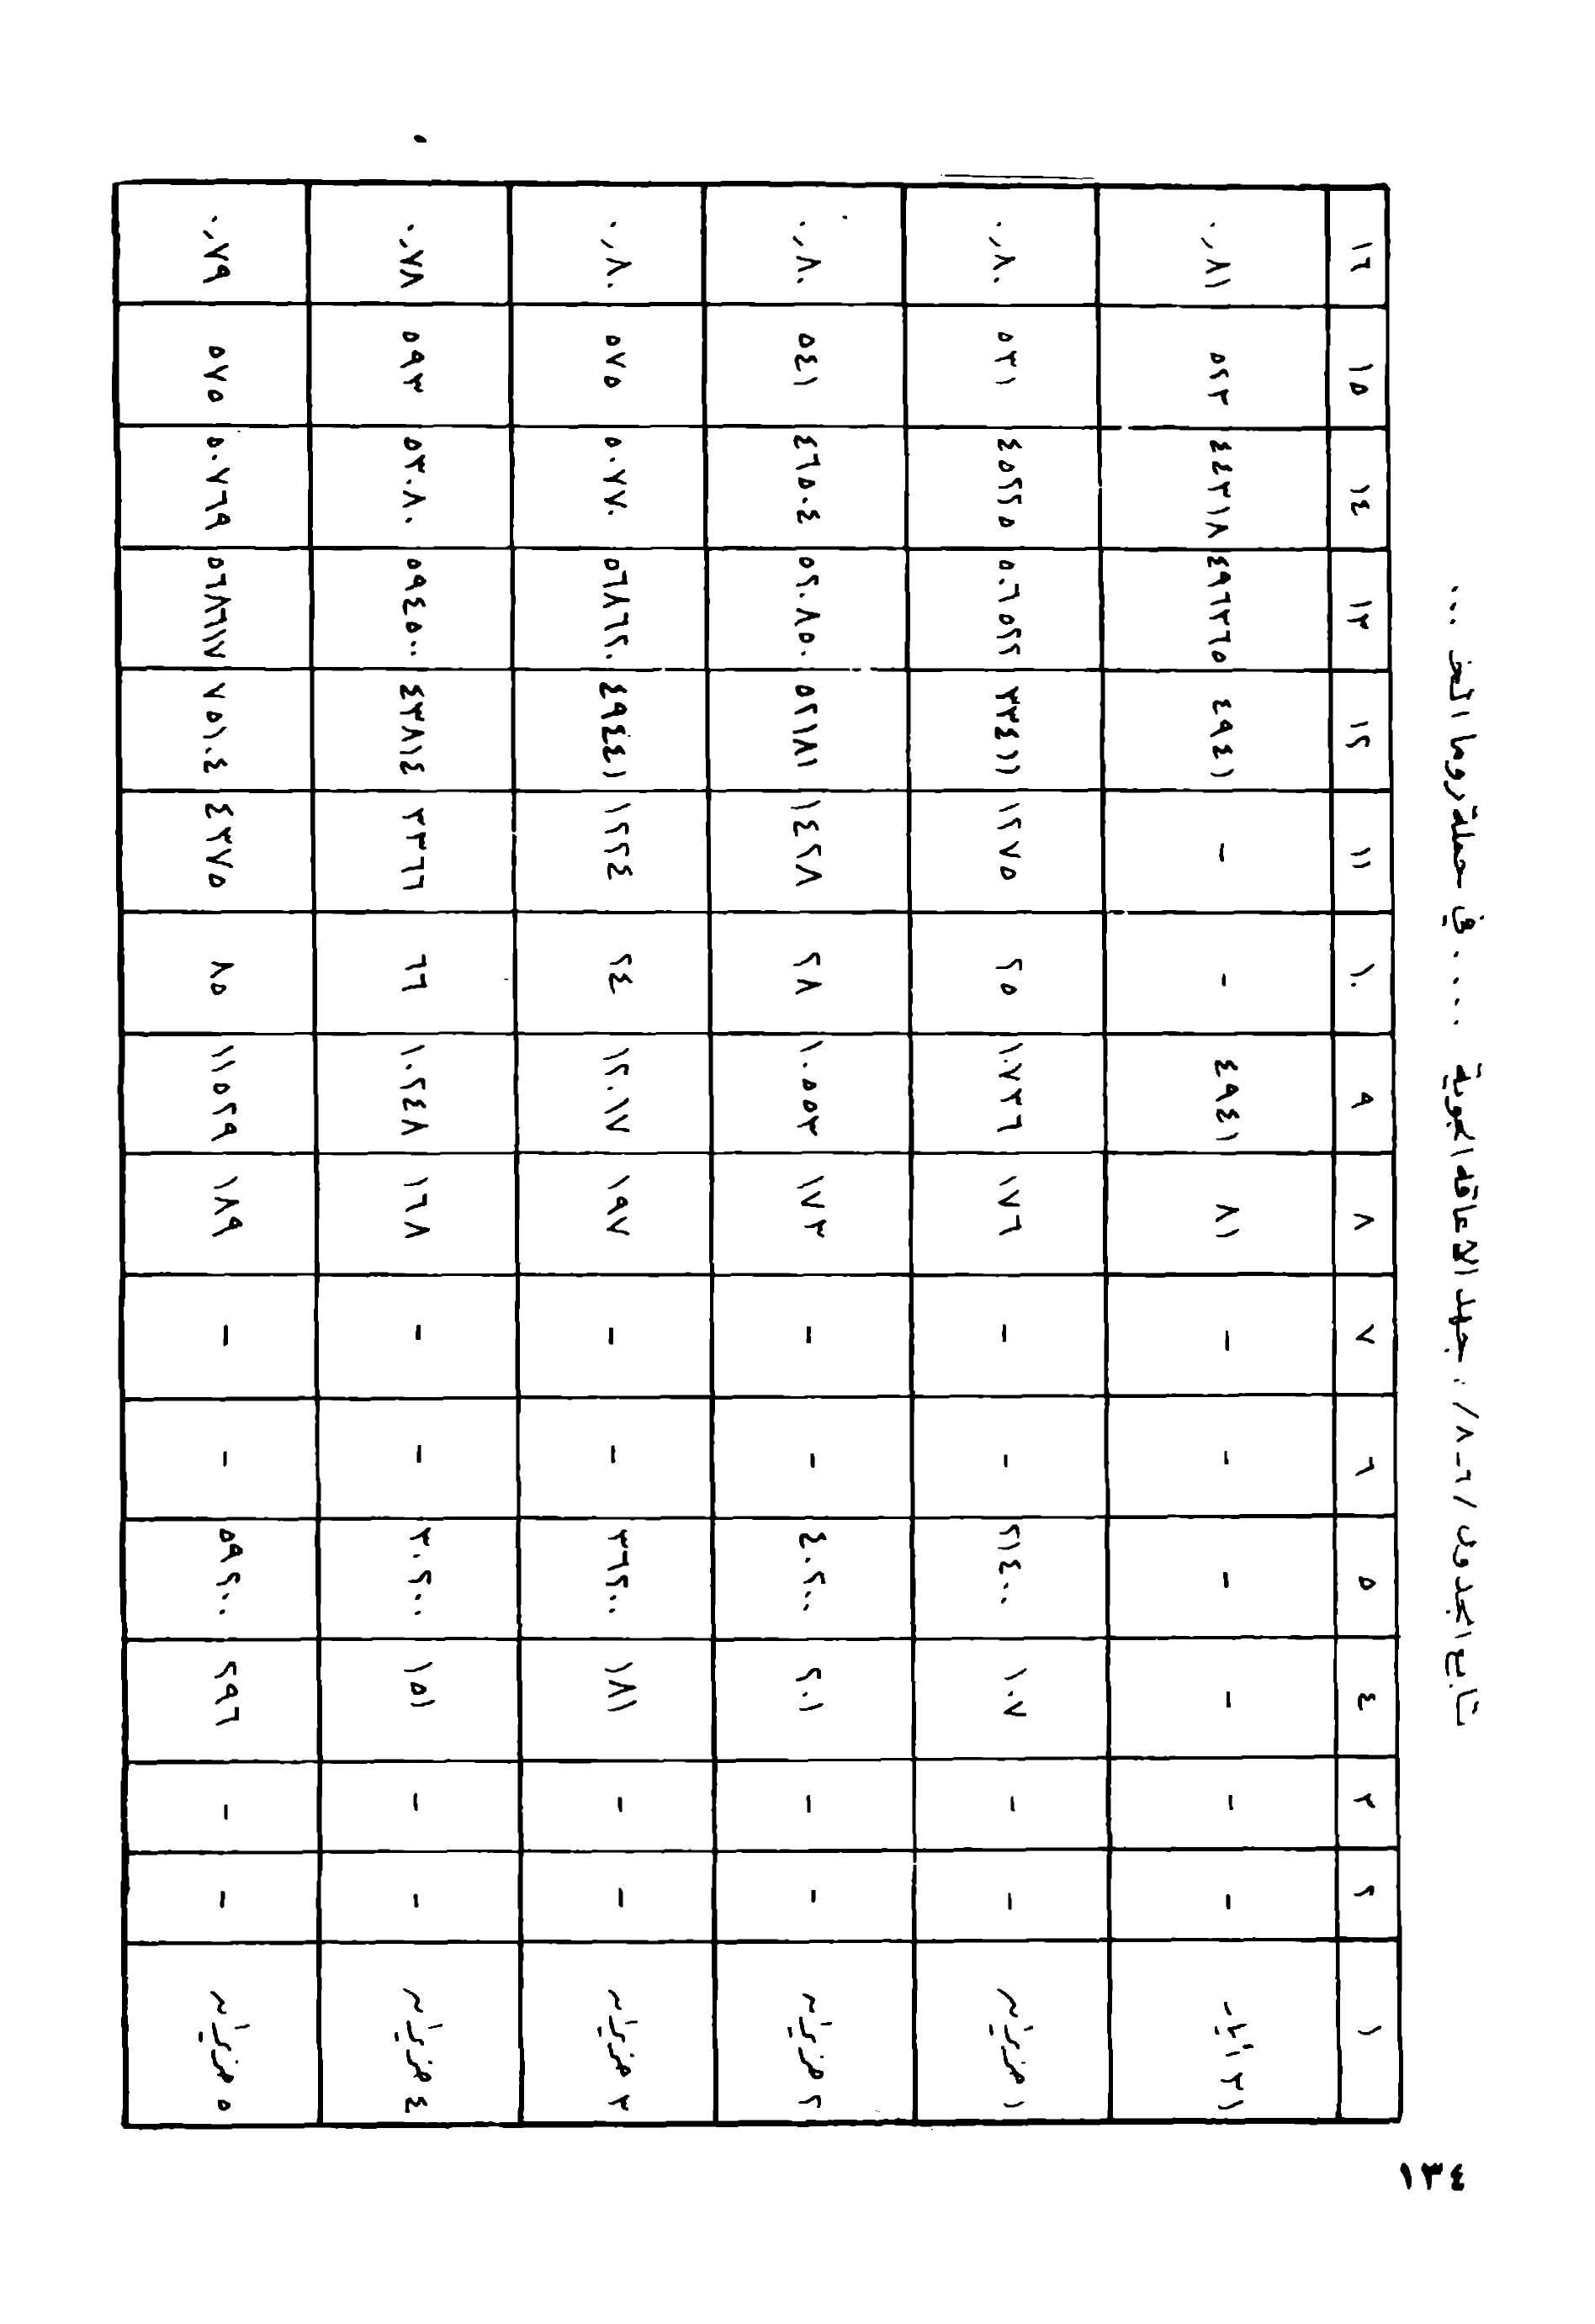 تابع الجدول /٦-٨/ : جهد الاعاقه الجوية .... في حملة روما الخ ...
١ ٢ ٣ ٤ ٥ ٦ ٧ ٨ ٩ ١٠ ١١ ١٢ ١٣ ١٤ ١٥ ١٦
٣١ أيار - - - - - - ٨١ ٤٩٤١ - - ٤٩٤١ ٤٩٦٣٦٥ ٤٤٣١٨ ٥٢٣ ٠,٨١
١ حزيران - - ١٠٧ ٢١٤٠٠ - - ١٧٦ ١٠٧٣٦ ٢٥ ١٢٧٥ ٣٣٤١١ ٥٠٦٥٢٢ ٤٥٢٢٥ ٥٣١ ٠,٨٠
٢ حزيران - - ٢٠١ ٤٠٢٠٠ - - ١٧٣ ١٠٥٥٣ ٢٨ ١٤٢٨ ٥٢١٨١ ٥٢٠٨٥٠ ٤٦٥٠٤ ٥٤١ ٠,٨٠
٣ حزيران - - ١٨١ ٣٦٢٠٠ - - ١٩٧ ١٢٠١٧ ٢٤ ١٢٢٤ ٤٩٤٤١ ٥٦٨٦٢٠ ٥٠٧٧٠ ٥٧٥ ٠,٨٠
٤ حزيران - - ١٥١ ٣٠٢٠٠ - - ١٦٨ ١٠٢٤٨ ٦٦ ٣٣٦٦ ٤٣٨١٤ ٥٩٤٥٠٠ ٥٣٠٨٠ ٥٩٣ ٠,٧٨
٥ حزيران - - ٢٩٦ ٥٩٢٠٠ - - ١٨٩ ١١٥٢٩ ٨٥ ٤٣٧٥ ٧٥١٠٤ ٥٦٨٦١٧ ٥٠٧٦٩ ٥٧٥ ٠,٧٩
١٣٤